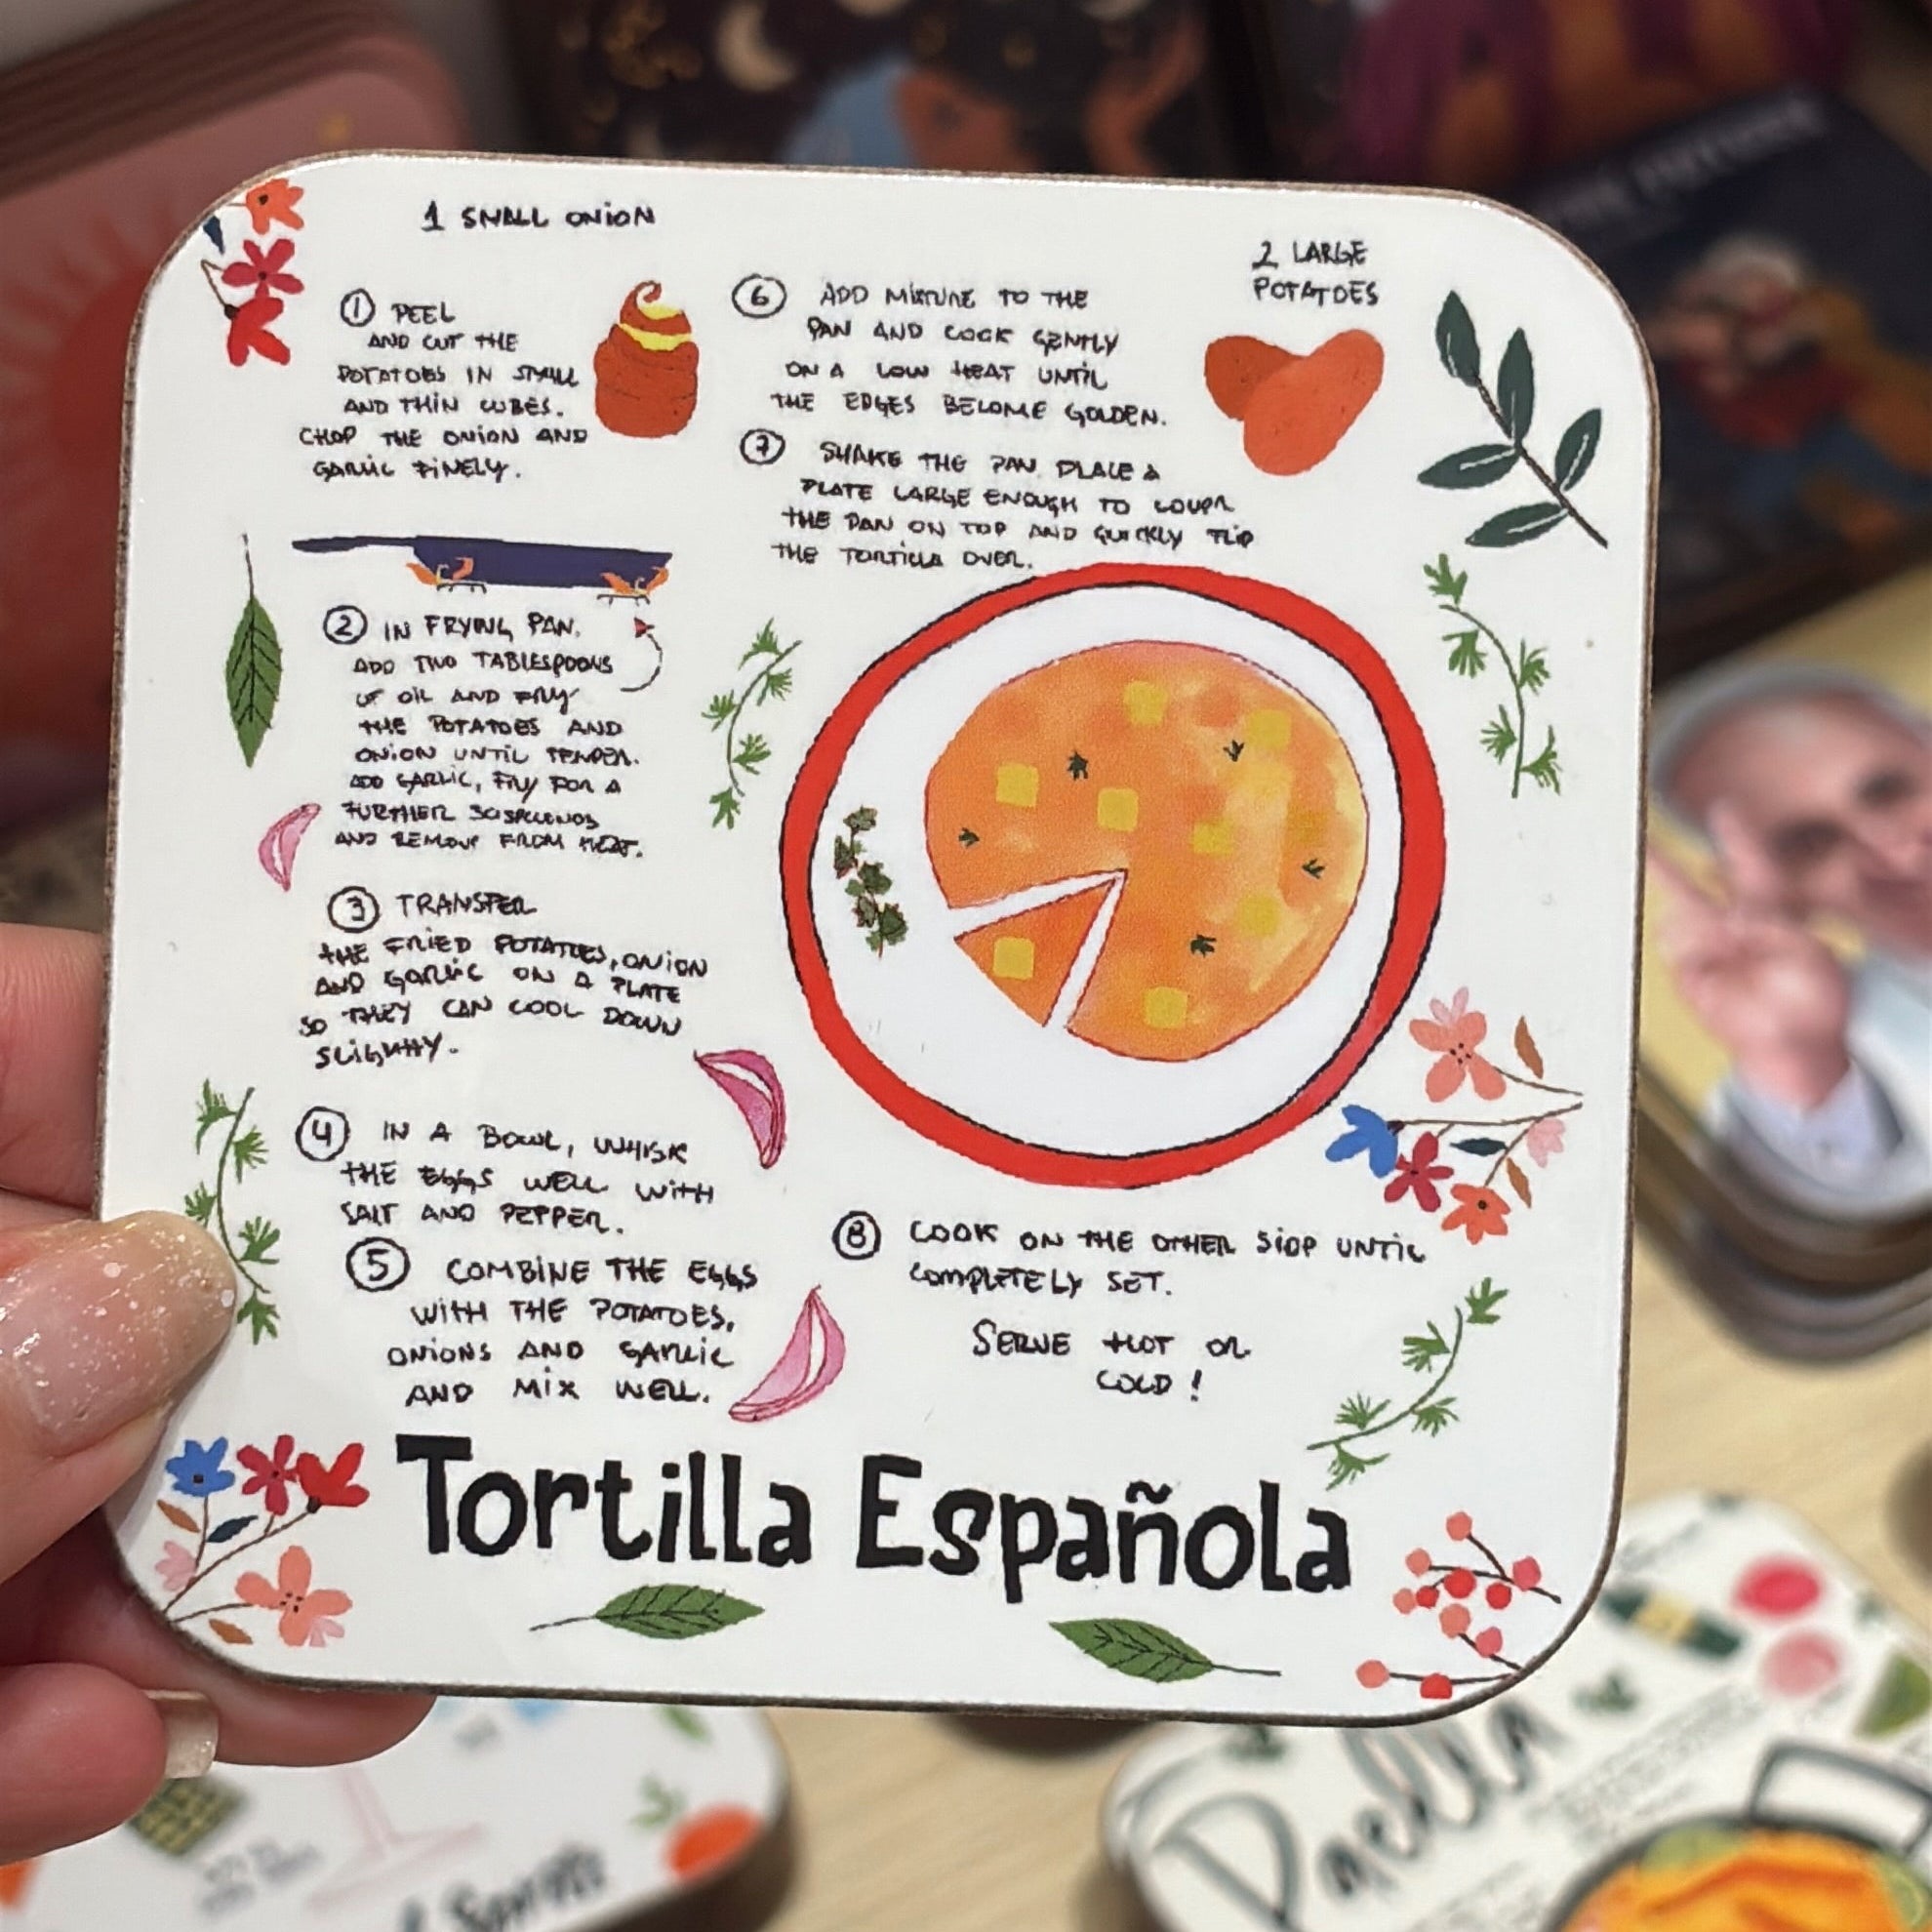 1 SMALL ONION
① PEEL
AND CUT THE
POTATOES IN SMALL
AND THIN CUBES.
CHOP THE ONION AND
GARLIC FINELY.
② IN FRYING PAN,
ADD TWO TABLESPOONS
OF OIL AND FRY
THE POTATOES AND
ONION UNTIL TENDER.
ADD GARLIC, FRY FOR A
FURTHER 30 SECONDS
AND REMOVE FROM HEAT.
③ TRANSFER
THE FRIED POTATOES, ONION
AND GARLIC ON A PLATE
SO THEY CAN COOL DOWN
SLIGHTLY.
④ IN A BOWL, WHISK
THE EGGS WELL WITH
SALT AND PEPPER.
⑤ COMBINE THE EGGS
WITH THE POTATOES,
ONIONS AND GARLIC
AND MIX WELL.
2 LARGE
POTATOES
⑥ ADD MIXTURE TO THE
PAN AND COOK GENTLY
ON A LOW HEAT UNTIL
THE EDGES BECOME GOLDEN.
⑦ SHAKE THE PAN. PLACE A
PLATE LARGE ENOUGH TO COVER
THE PAN ON TOP AND QUICKLY FLIP
THE TORTILLA OVER.
⑧ COOK ON THE OTHER SIDE UNTIL
COMPLETELY SET.
SERVE HOT OR
COLD!
Tortilla Española
Paella